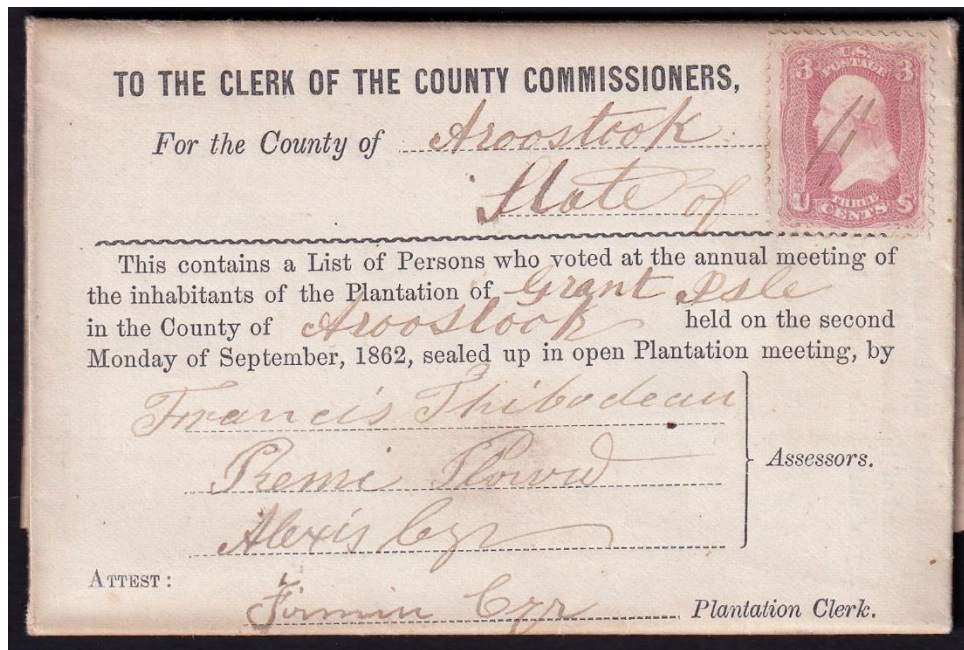 TO THE CLERK OF THE COUNTY COMMISSIONERS,
U.S.
3 POSTAGE 3
For the County of Aroostook
State of
U THREE S
CENTS
This contains a List of Persons who voted at the annual meeting of
the inhabitants of the Plantation of Grant Isle
in the County of Aroostook held on the second
Monday of September, 1862, sealed up in open Plantation meeting, by
Francis Thibodeau
Remi Plourd
Alexis Cyr
Assessors.
ATTEST:
Firmin Cyr Plantation Clerk.